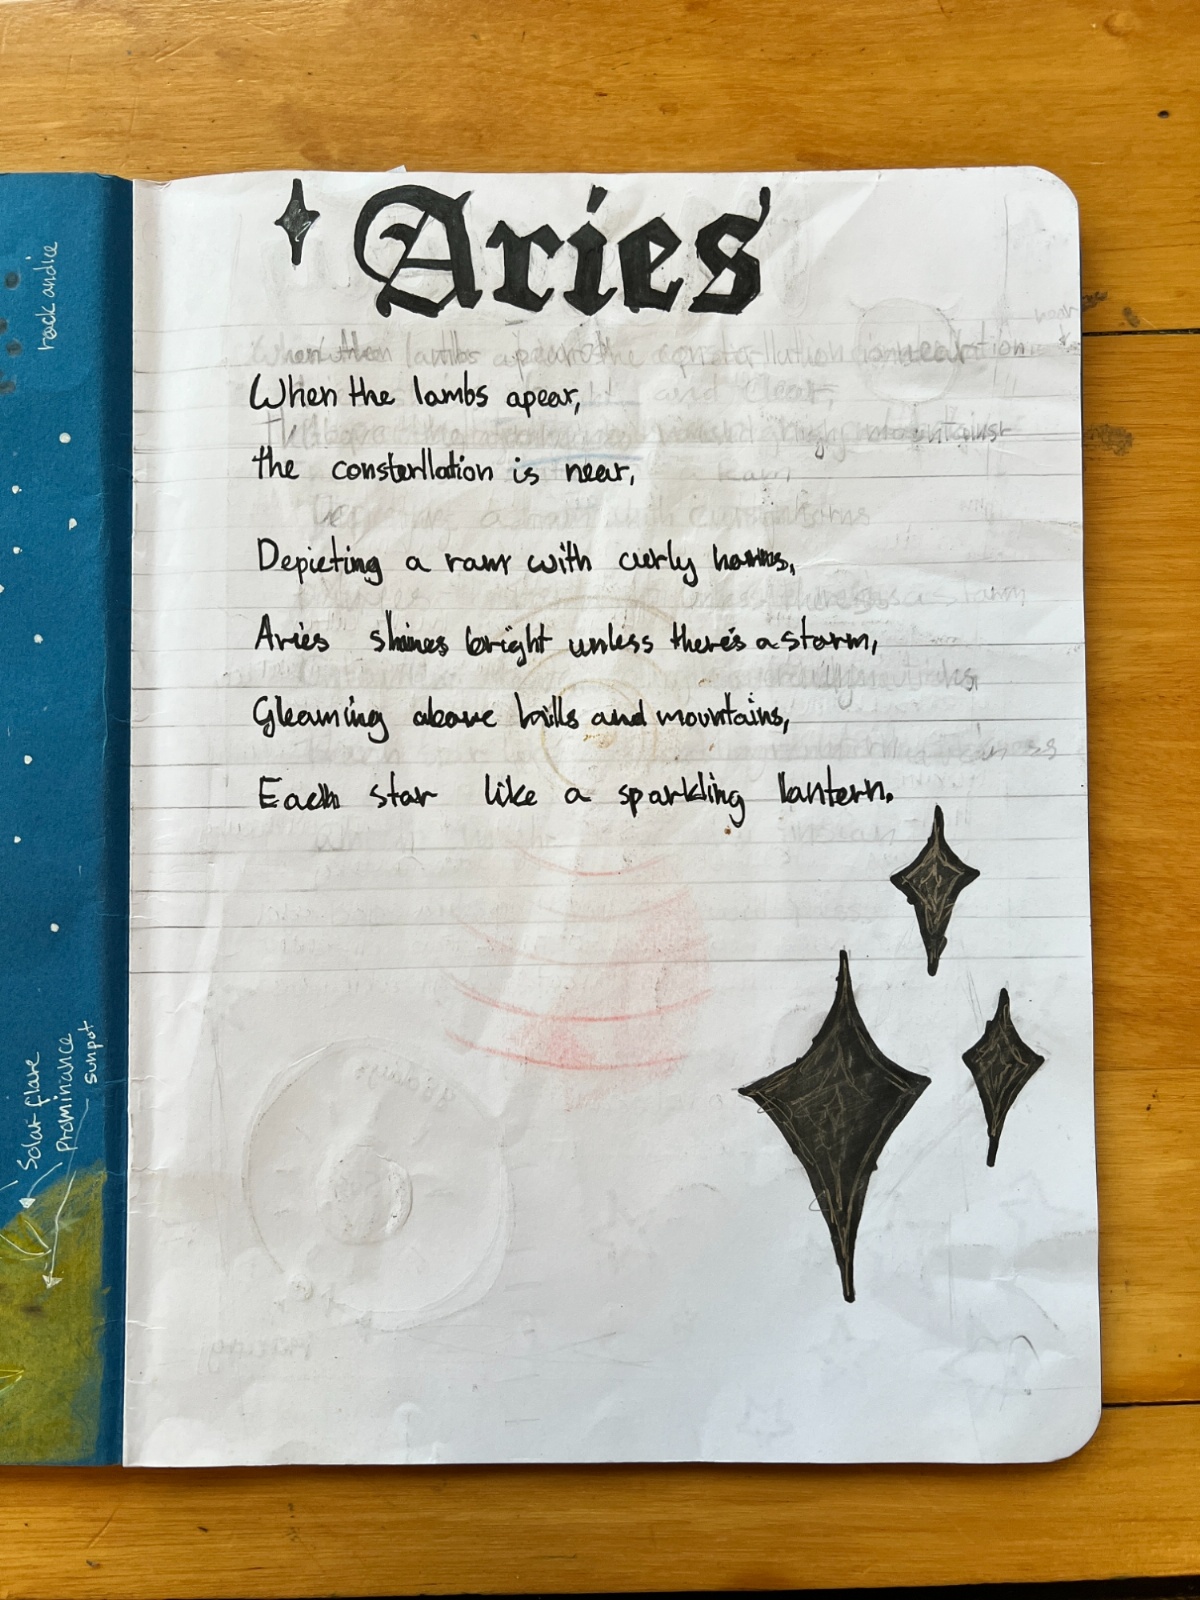 rock and ice
Solar flare
Prominance
sunpot
Aries
When the lambs apear,
the consterllation is near,
Depicting a ram with curly horns,
Aries shines bright unless there's a storm,
Gleaming above hills and mountains,
Each star like a sparkling lantern.